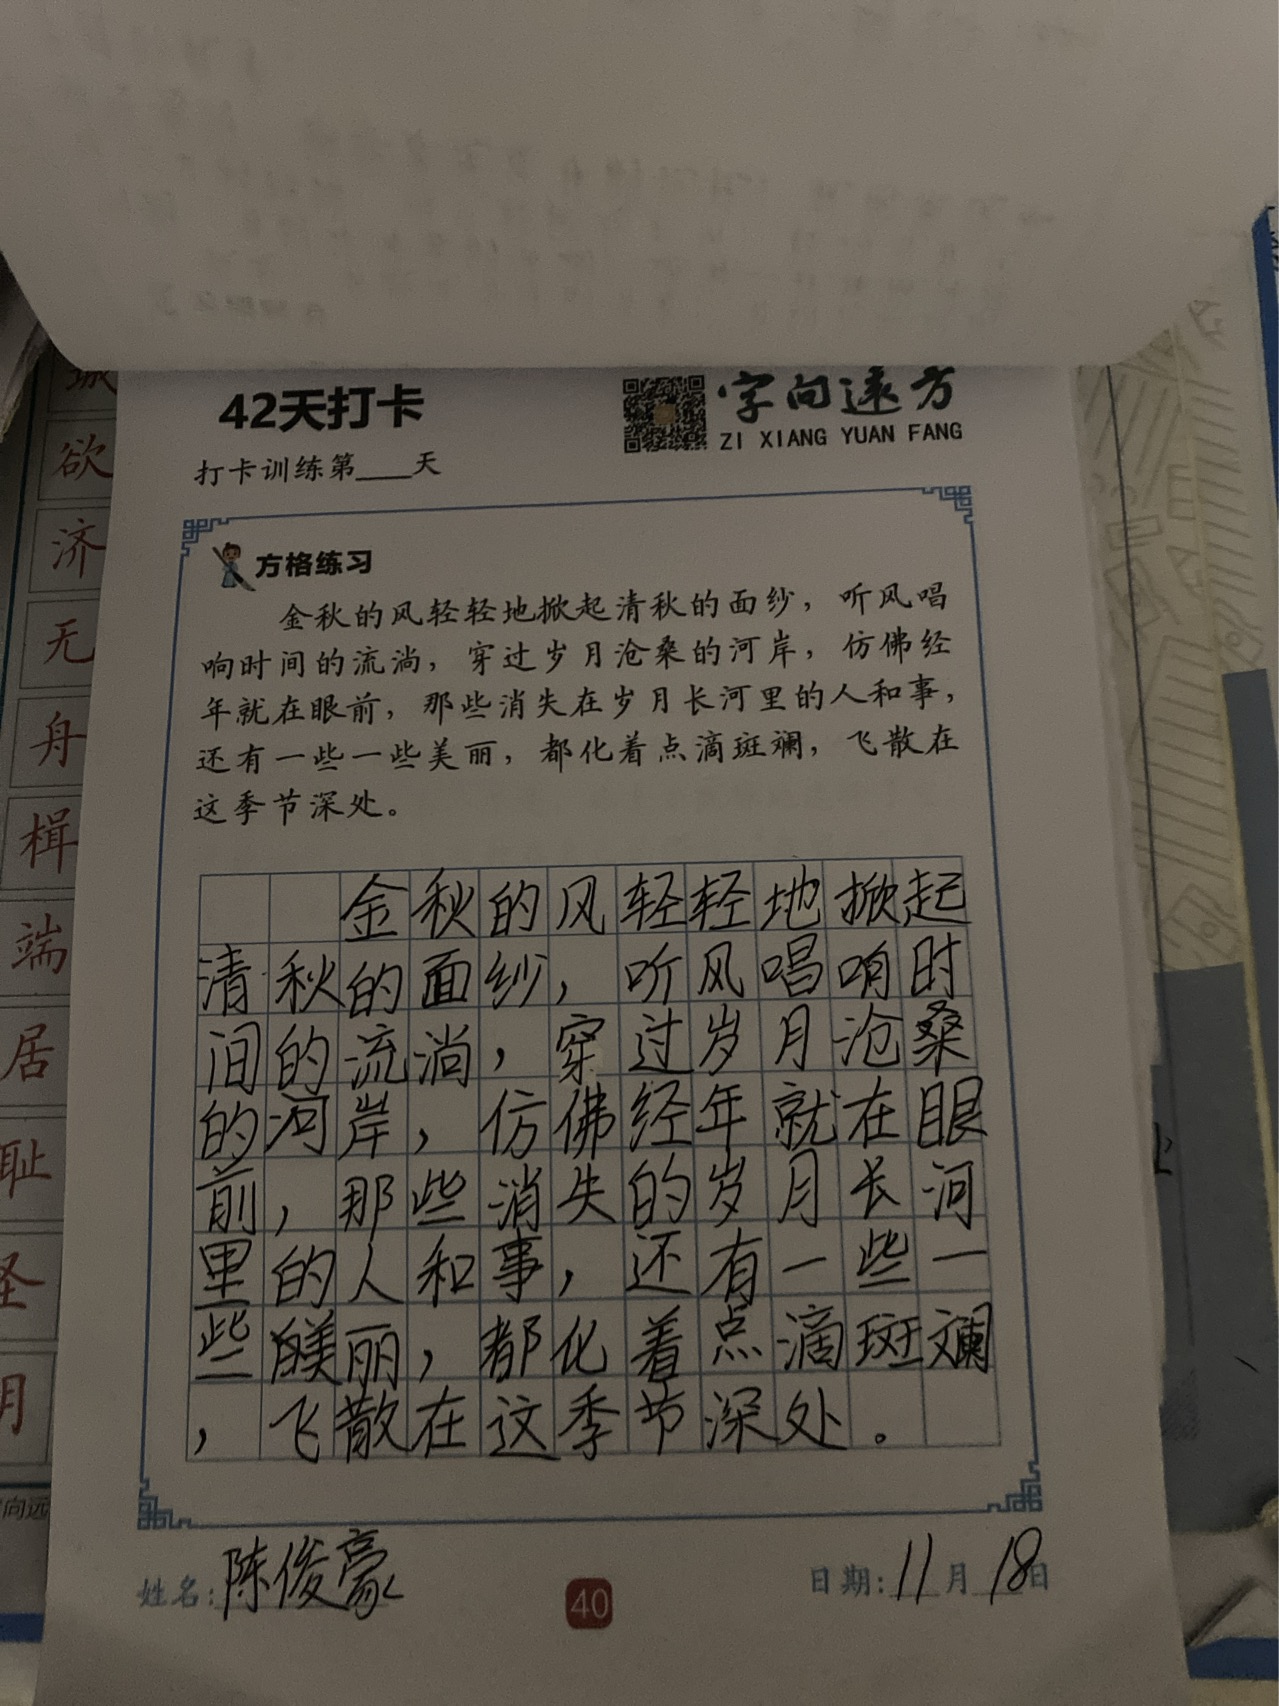 42天打卡
字向远方
ZI XIANG YUAN FANG
打卡训练第___天
方格练习
金秋的风轻轻地掀起清秋的面纱，听风唱
响时间的流淌，穿过岁月沧桑的河岸，仿佛经
年就在眼前，那些消失在岁月长河里的人和事，
还有一些一些美丽，都化着点滴斑斓，飞散在
这季节深处。
金秋的风轻轻地掀起
清秋的面纱，听风唱响时
间的流淌，穿过岁月沧桑
的河岸，仿佛经年就在眼
前，那些消失的岁月长河
里的人和事，还有一些一
些美丽，都化着点滴斑斓
，飞散在这季节深处。
姓名：陈俊豪
40
日期：11月18日
欲
济
无
舟
楫
端
居
耻
圣
明
向远